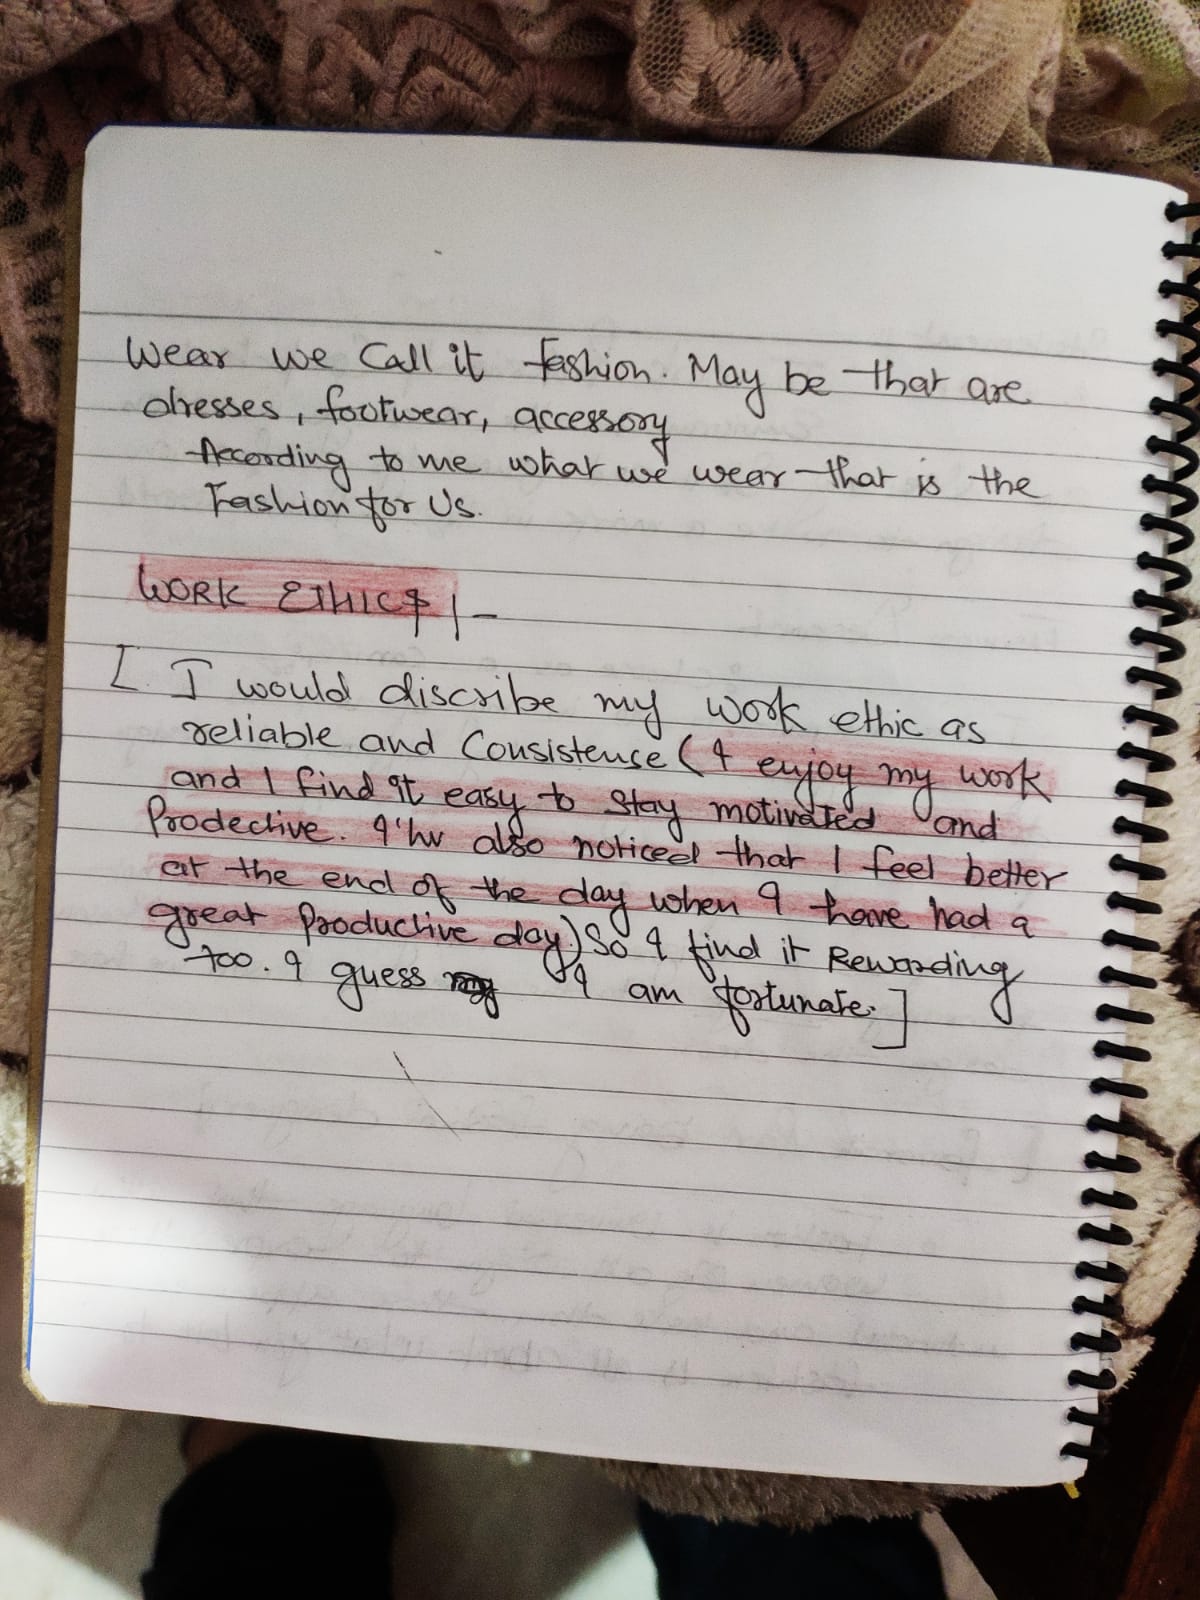 Wear we Call it fashion. May be that are
dresses, footwear, accessory
According to me what we wear that is the
Fashion for Us.
WORK ETHICS |-
[ I would discribe my work ethic as
reliable and Consistense (I enjoy my work
and I find it easy to stay motivated and
Prodective. I'hv also noticed that I feel better
at the end of the day when I have had a
great Productive day.) So I find it Rewarding
too. I guess I am fortunate. ]